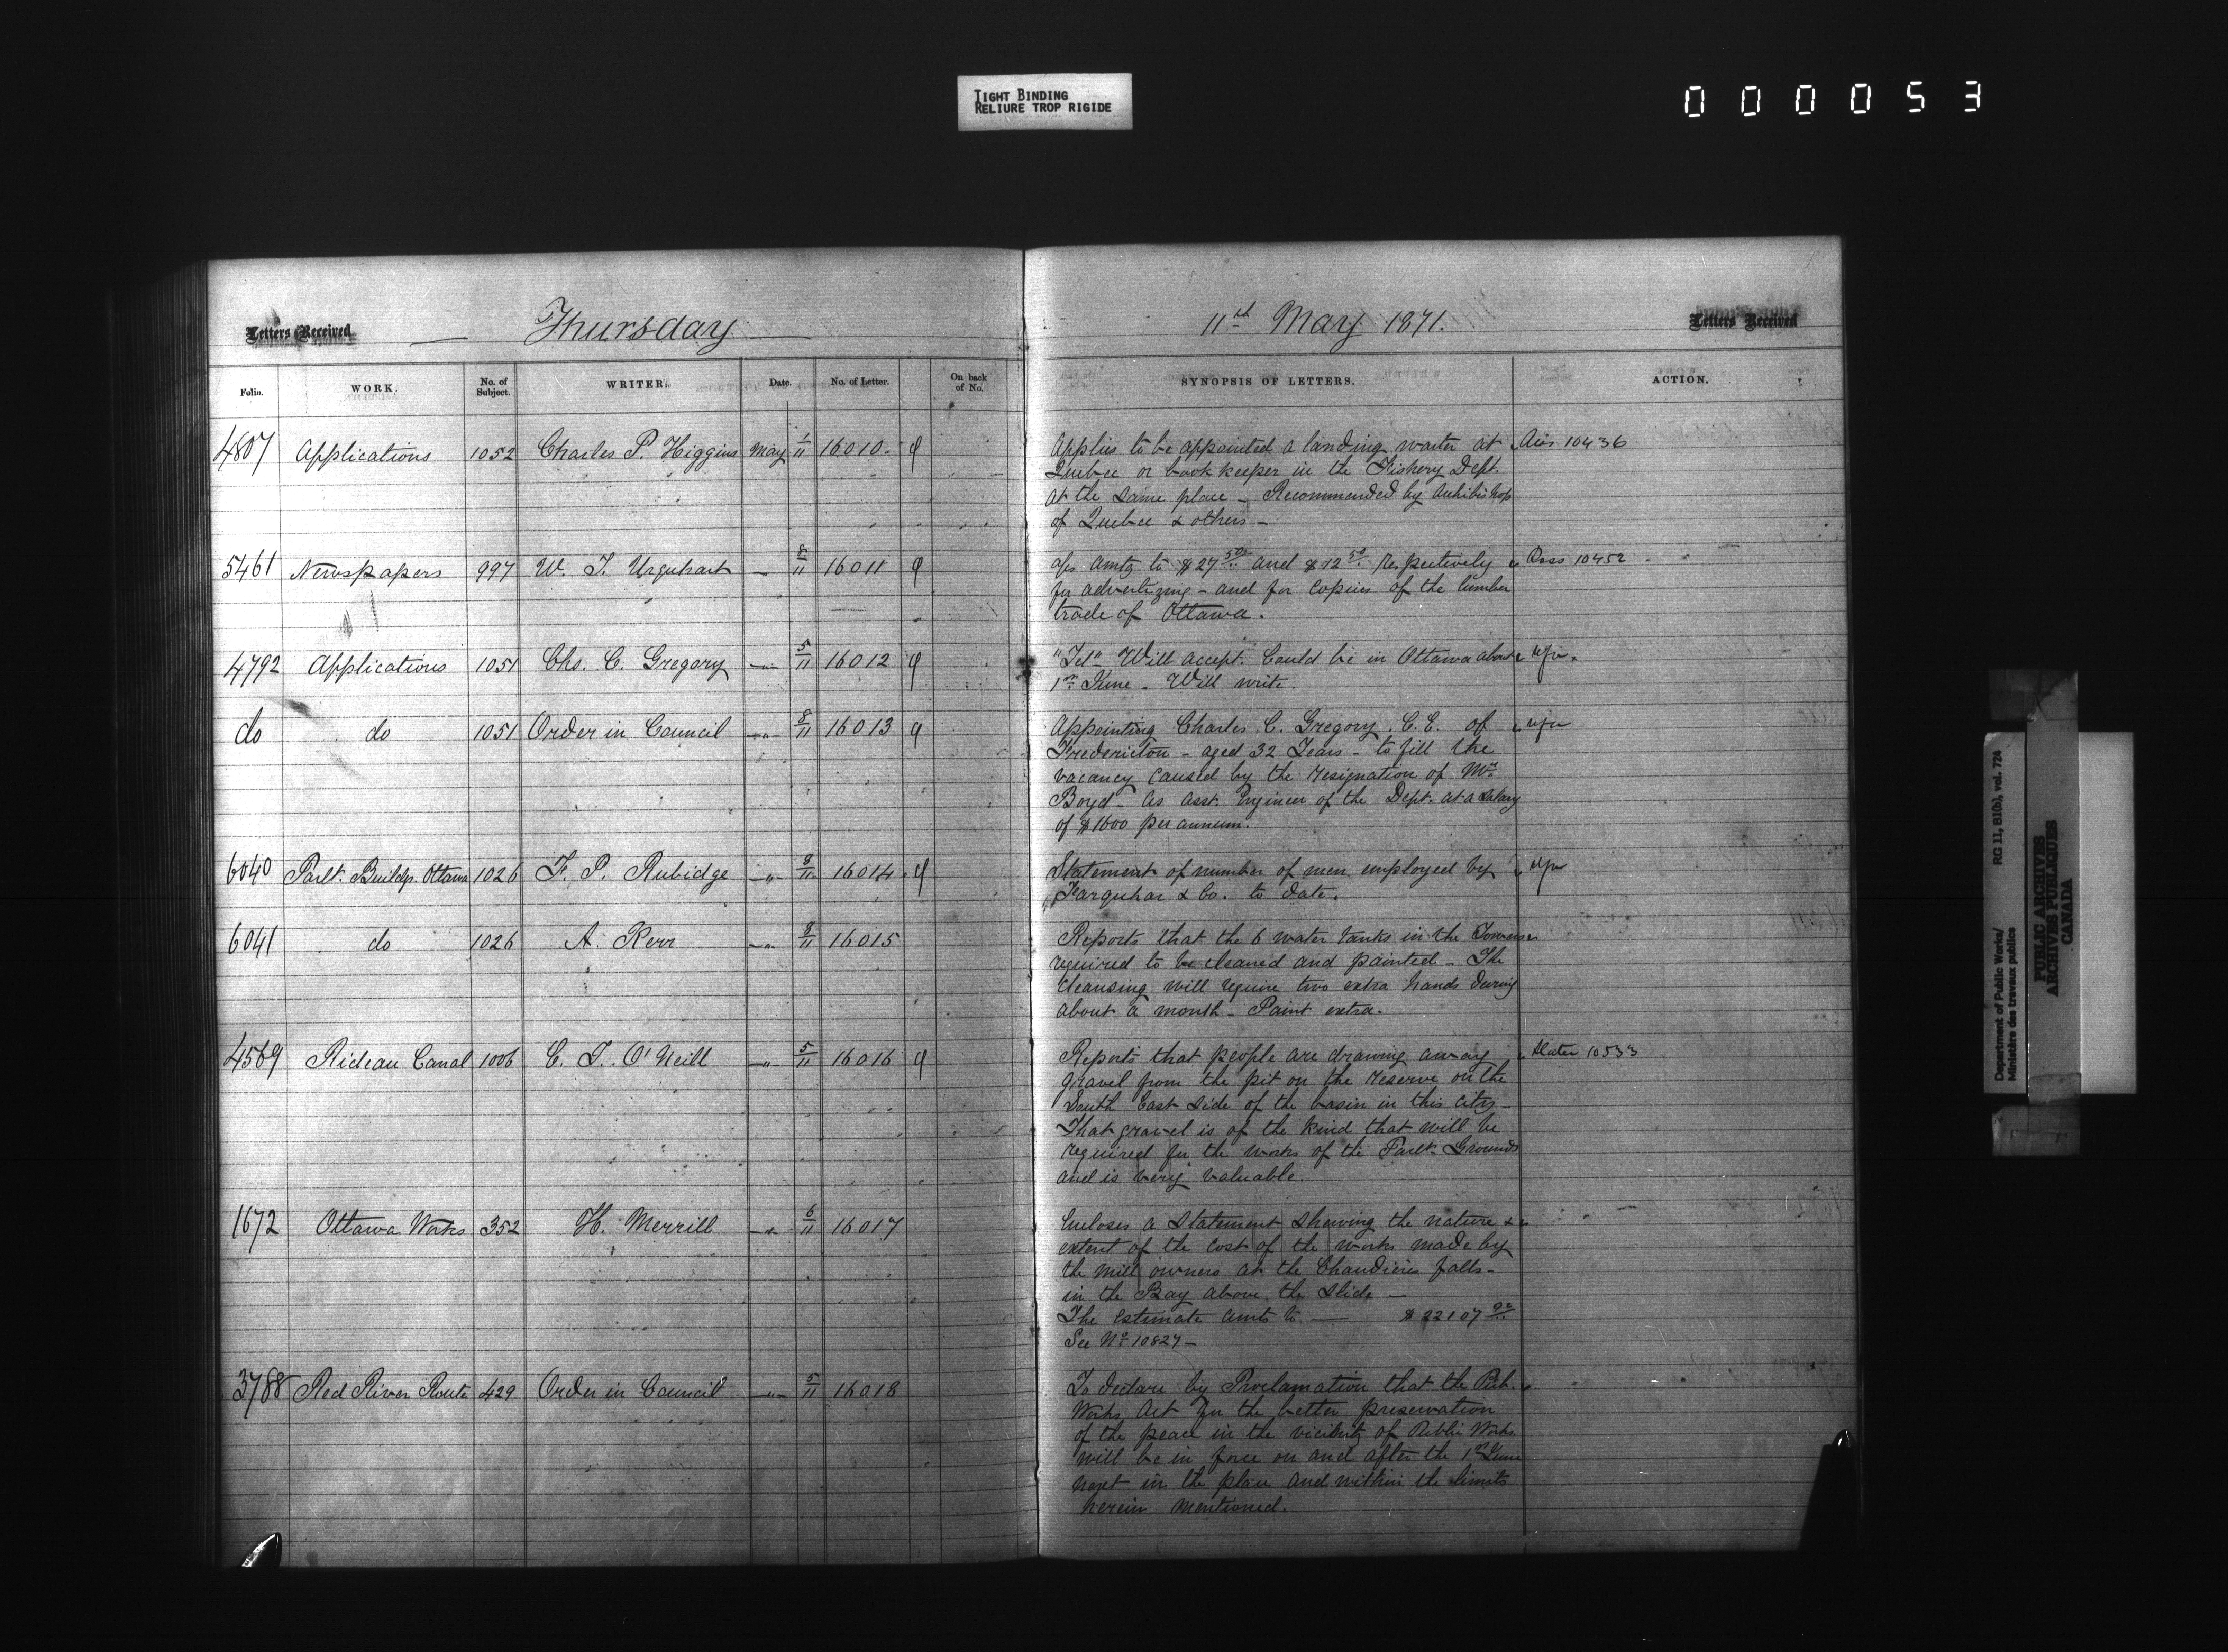 TIGHT BINDING
RELIURE TROP RIGIDE
000053
Letters Received
Thursday
11th May 1871.
Letters Received
Folio. WORK. No. of Subject. WRITER. Date. No. of Letter. On back of No. SYNOPSIS OF LETTERS. ACTION.
4807 Applications 1052 Charles P. Higgins May 1/11 16010
Applies to be appointed a landing waiter at Ans 10436
Quebec or book keeper in the Fishery Dept.
at the same place - Recommended by Archbishop
of Quebec & others -
5461 Newspapers 997 W. T. Urquhart 8/11 16011
a/cs amtg to $27 50 and $12 50 respectively 10452
for advertizing - and for copies of the lumber
trade of Ottawa.
4792 Applications 1051 Chs. C. Gregory -"- 5/11 16012
"Tel" Will accept. Could be in Ottawa about
1st June - Will write.
do do 1051 Order in Council -"- 8/11 16013
Appointing Charles C. Gregory, C.E. of
Fredericton - aged 32 Years - to fill the
vacancy caused by the resignation of Mr
Boyd - as asst Engineer of the Dept. at a salary
of $1600 per annum.
6040 Parlt. Buildgs. Ottawa 1026 F. P. Rubidge -"- 8/11 16014
Statement of number of men employed by
Farquhar & Co. to date.
6041 do 1026 A. Kerr -"- 8/11 16015
Reports that the 6 water tanks in the Towers
required to be cleaned and painted - The
cleansing will require two extra hands during
about a month - Paint extra.
4569 Rideau Canal 1006 C. T. O'Neill -"- 5/11 16016
Reports that people are drawing away Slater 10533
gravel from the pit on the reserve on the
South East side of the basin in this city -
That gravel is of the kind that will be
required for the works of the Parlt. Grounds
and is very valuable.
1672 Ottawa Works 352 H. Merrill -"- 6/11 16017
Encloses a statement shewing the nature &
extent of the cost of the works made by
the mill owners at the Chaudiere falls -
in the Bay above the slide -
The estimate amts to — $22107
See No 10827 -
3788 Red River Route 429 Order in Council -"- 5/11 16018
To declare by Proclamation that the Pub.
Works Act for the better preservation
of the peace in the vicinity of Public Works
will be in force on and after the 1st June
next in the place and within the limits
herein mentioned.
Department of Public Works/ RG 11, B1(b), vol. 724
Ministère des travaux publics
PUBLIC ARCHIVES
ARCHIVES PUBLIQUES
CANADA